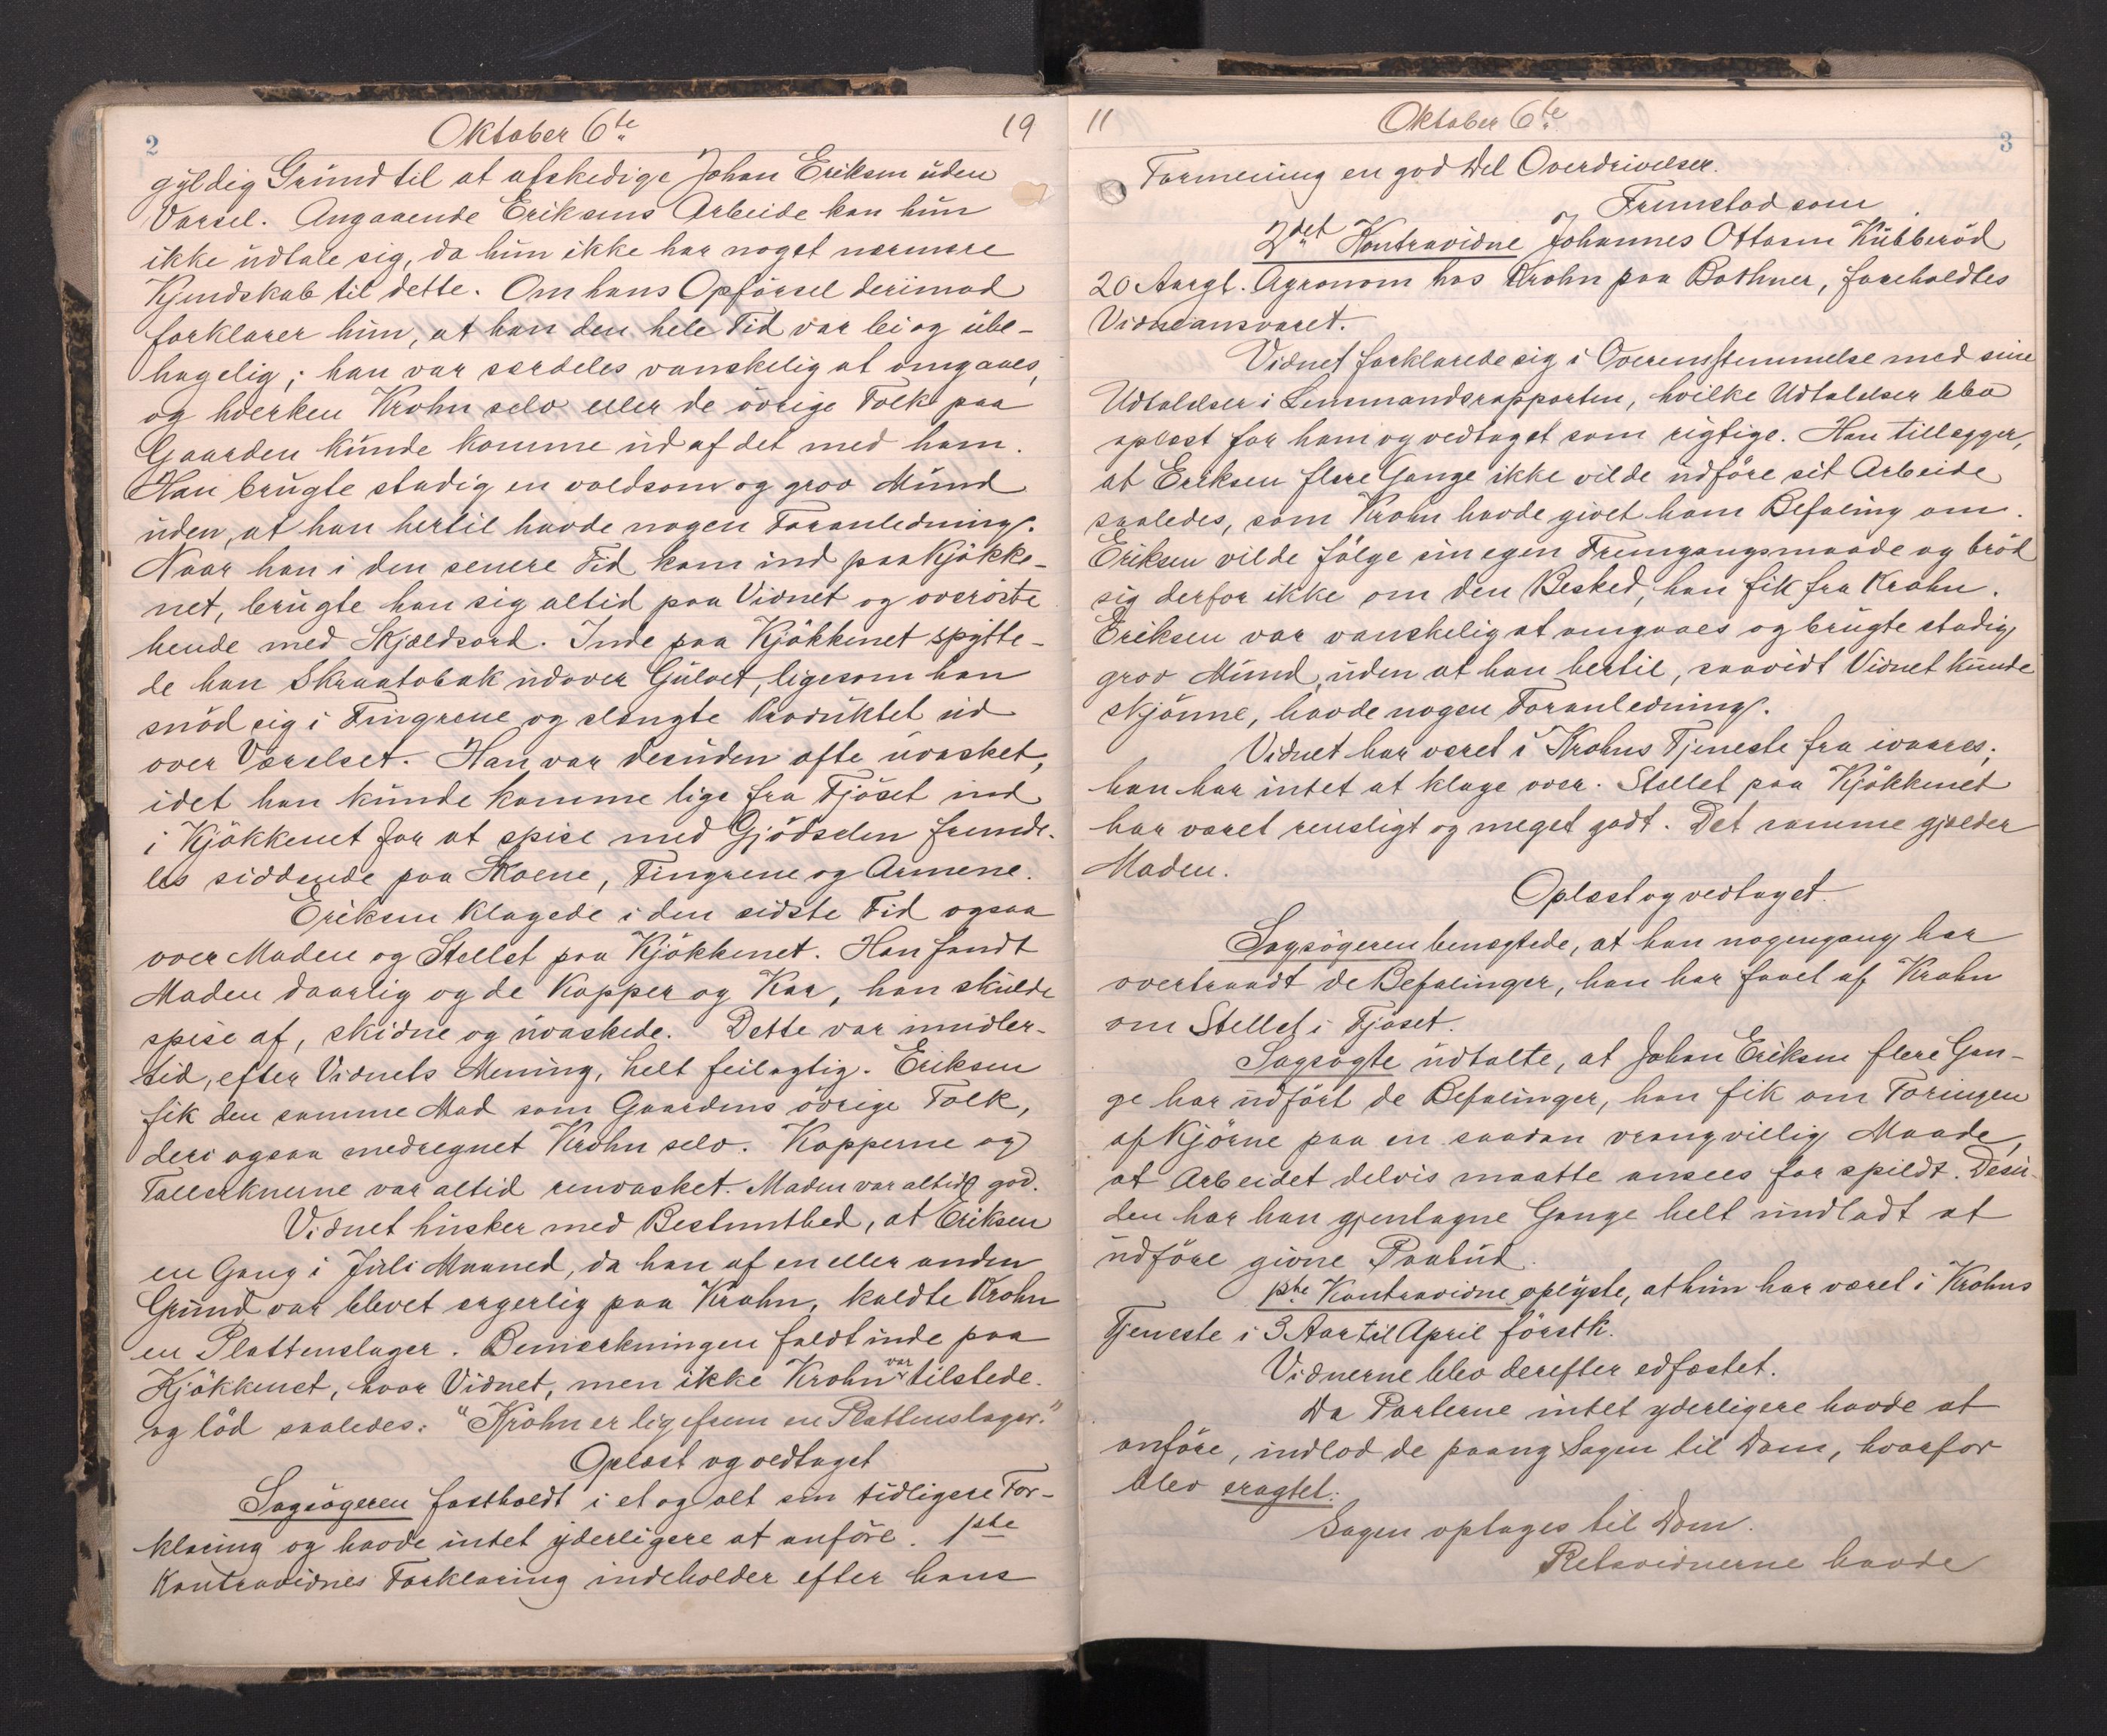 2
Oktober 6te
19
gyldig Grund til at afskedige Johan Eriksen uden
Varsel. Angaaende Eriksens Arbeide kan hun
ikke udtale sig, da hun ikke har noget nærmere
Kjendskab til dette. Om hans Opførsel derimod
forklarer hun, at han den hele Tid var lei og ube-
hagelig; han var særdeles vanskelig at omgaaes,
og hverken Krohn selv eller de övrige Folk paa
Gaarden kunde komme ud af det med ham.
Han brugte stadig en voldsom og grov Mund
uden, at han hertil havde nogen Foranledning.
Naar han i den senere Tid kom ind paa Kjökke-
net, brugte han sig altid paa Vidnet og overöste
hende med Skjældsord. Inde paa Kjökkenet spytte-
de han Skraatobak udover Gulvet, ligesom han
snöd sig i Fingrene og slængte Produktet ud
over Værelset. Han var desuden ofte uvasket,
idet han kunde komme lige fra Fjöset ind
i Kjökkenet for at spise med Gjödselen fremde-
les siddende paa Skoene, Fingrene og Armene.
Eriksen klagede i den sidste Tid ogsaa
over Maden og Stellet paa Kjökkenet. Han fandt
Maden daarlig og de Kopper og Kar, han skulde
spise af, skidne og uvaskede. Dette var imidler-
tid, efter Vidnets Mening, helt feilagtig. Eriksen
fik den samme Mad som Gaardens övrige Folk,
deri ogsaa medregnet Krohn selv. Kopperne og
Tallerknerne var altid renvasket. Maden var altid god.
Vidnet husker med Bestemthed, at Eriksen
en Gang i Juli Maaned, da han af en eller anden
Grund var blevet ærgerlig paa Krohn, kaldte Krohn
en Plattenslager. Bemærkningen faldt inde paa
Kjökkenet, hvor Vidnet, men ikke Krohn var tilstede
og löd saaledes: "Krohn er ligefrem en Plattenslager."
Oplæst og vedtaget
Sagsögeren fastholdt i et og alt sin tidligere For-
klaring og havde intet yderligere at anföre. 1ste
Kontravidnes Forklaring indeholder efter hans
11
Oktober 6te
3
Formening en god Del Overdrivelser.
Fremstod som
2det Kontravidne Johannes Ottosen Kubberöd
20 Aar gl. Agronom hos Krohn paa Bothner, foreholdtes
Vidneansvaret.
Vidnet forklarede sig i Overensstemmelse med sine
Udtalelser i Lensmandsrapporten, hvilke Udtalelser blev
oplæst for ham og vedtaget som rigtige. Han tillægger,
at Eriksen flere Gange ikke vilde udföre sit Arbeide
saaledes, som Krohn havde givet ham Befaling om.
Eriksen vilde fölge sin egen Fremgangsmaade og bröd
sig derfor ikke om den Besked, han fik fra Krohn.
Eriksen var vanskelig at omgaaes og brugte stadig
grov Mund, uden at han hertil, saavidt Vidnet kunde
skjönne, havde nogen Foranledning.
Vidnet har været i Krohns Tjeneste fra ivaares;
han har intet at klage over. Stellet paa Kjökkenet
har været rensligt og meget godt. Det samme gjælder
Maden.
Oplæst og vedtaget.
Sagsögeren benægtede, at han nogengang har
overtraadt de Befalinger, han har faaet af Krohn
om Stellet i Fjöset.
Sagsögte udtalte, at Johan Eriksen flere Gan-
ge har udfört de Befalinger, han fik om Foringen
af Kjörne paa en saadan vrangvillig Maade,
at Arbeidet delvis maatte ansees for spildt. Desu-
den har han gjentagne Gange helt undladt at
udföre givne Paabud.
1ste Kontravidne oplyste, at hun har været i Krohns
Tjeneste i 3 Aar til April förstk.
Vidnerne blev derefter edfæstet.
Da Parterne intet yderligere havde at
anföre, indlod de paany Sagen til Dom, hvorfor
blev eragtet:
Sagen optages til Dom.
Retsvidnerne havde